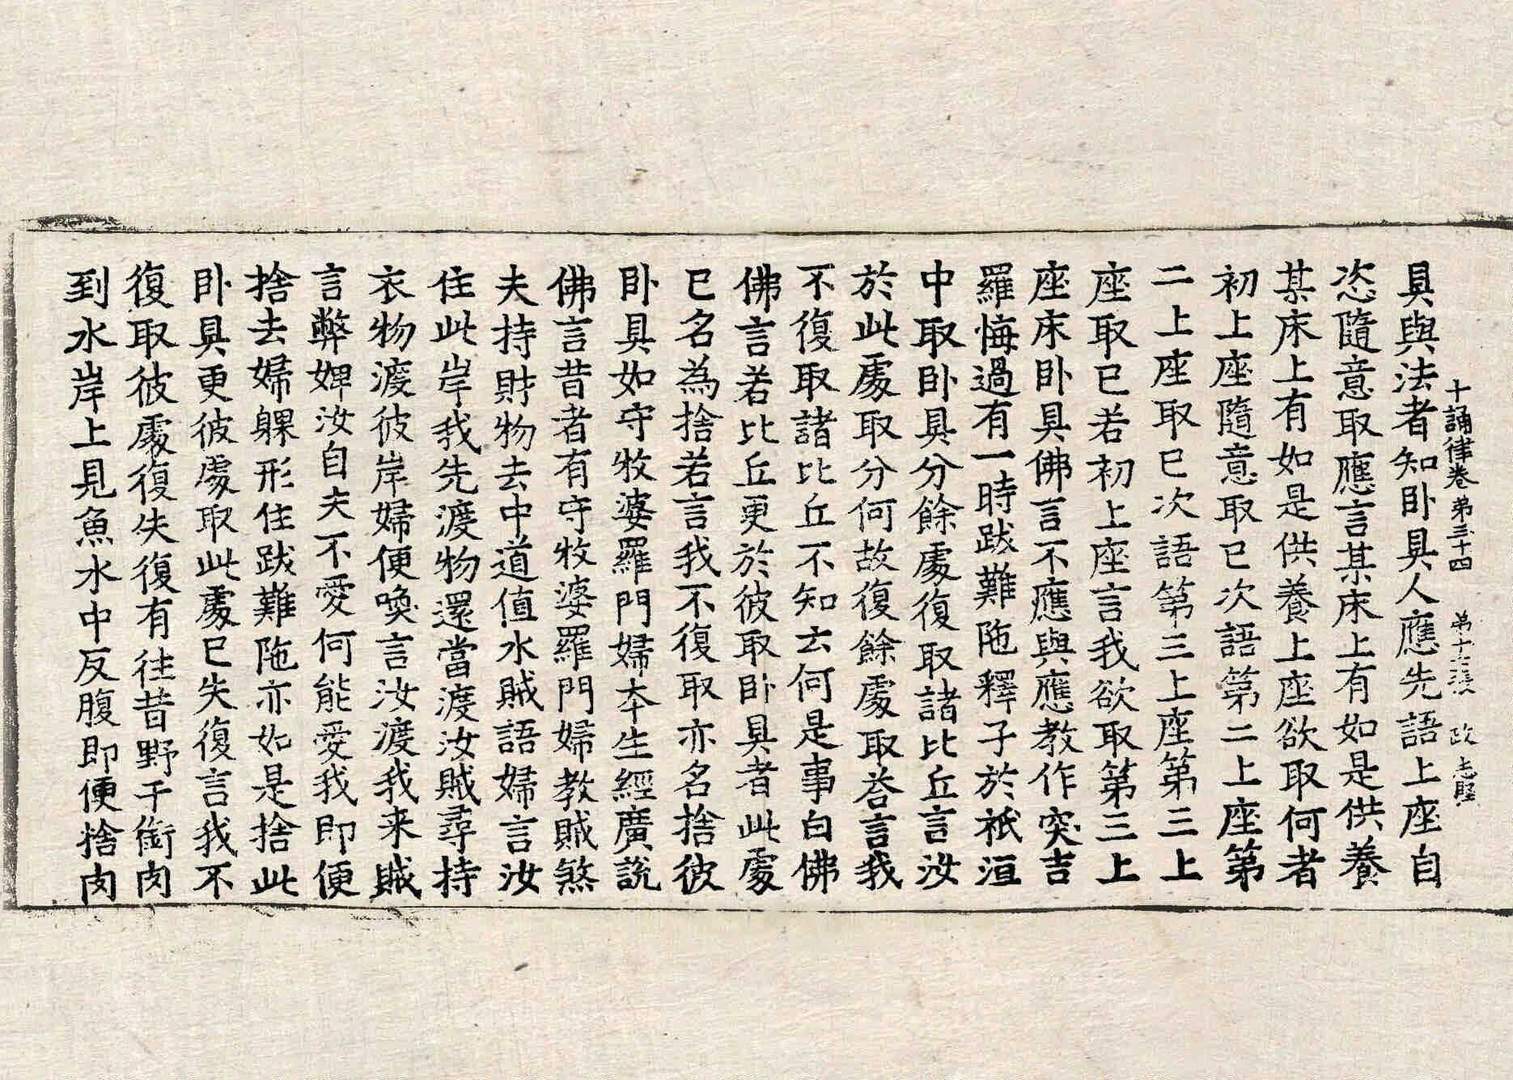 十誦律卷第三十四 第十二張 政 志堅
具與法者知臥具人應先語上座自
恣隨意取應言某床上有如是供養
某床上有如是供養上座欲取何者
初上座隨意取已次語第二上座第
二上座取已次語第三上座第三上
座取已若初上座言我欲取第三上
座床臥具佛言不應與應教作突吉
羅悔過有一時跋難陁釋子於祇洹
中取臥具分餘處復取諸比丘言汝
於此處取分何故復餘處取荅言我
不復取諸比丘不知云何是事白佛
佛言若比丘更於彼取臥具者此處
已名為捨若言我不復取亦名捨彼
臥具如守牧婆羅門婦本生經廣說
佛言昔者有守牧婆羅門婦教賊煞
夫持財物去中道值水賊語婦言汝
住此岸我先渡物還當渡汝賊尋持
衣物渡彼岸婦便喚言汝渡我来賊
言弊婢汝自夫不愛何能愛我即便
捨去婦躶形住跋難陁亦如是捨此
臥具更彼處取此處已失復言我不
復取彼處復失復有往昔野干銜肉
到水岸上見魚水中反腹即便捨肉